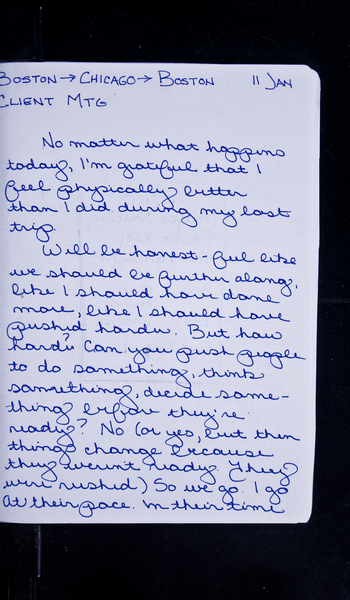 BOSTON → CHICAGO → BOSTON 11 JAN
CLIENT MTG
No matter what happens
today, I'm grateful that I
feel physically better
than I did during my last
trip.
Will be honest - feel like
we should be further along,
like I should have done
more, like I should have
pushed harder. But how
hard? Can you push people
to do something, think
something, decide some-
thing before they're
ready? No (or yes, but then
things change because
they weren't ready. They
were rushed) So we go. I go
at their pace. In their time